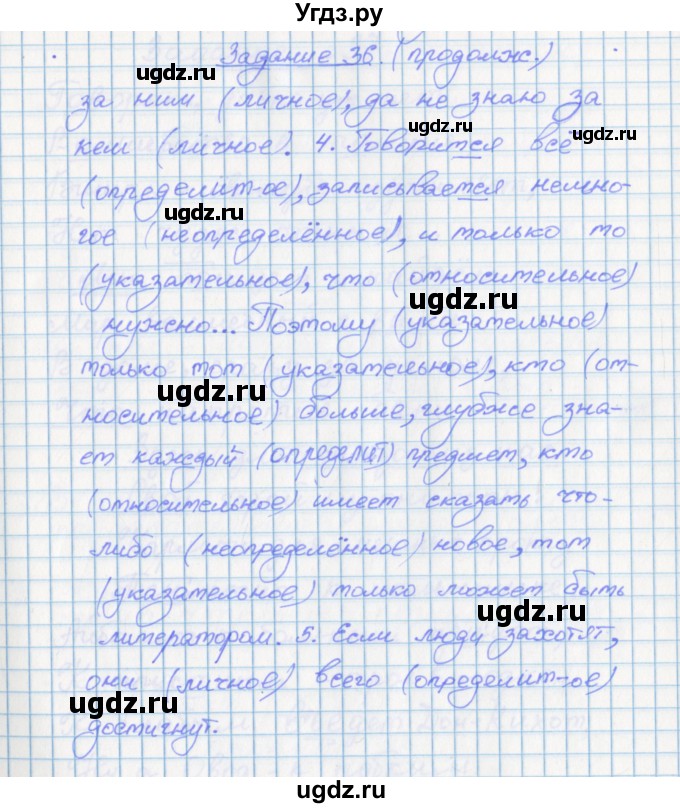 Угдз.ру
Задание 36. (продолж.)
ugdz.ru ugdz.ru
за ним (личное), да не знаю за
ugdz.ru ugdz.ru
кем (личное). 4. Говорится всё
(определит-ое), записывается немно-
ugdz.ru ugdz.ru
гое (неопределённое), и только то
(указательное), что (относительное)
ugdz.ru
нужно... Поэтому (указательное)
только тот (указательное), кто (от-
ugdz.ru
носительное) больше, глубже зна-
ет каждый (определит) предмет, кто
ugdz.ru
(относительное) имеет сказать что-
либо (неопределённое) новое, тот
(указательное) только может быть
ugdz.ru
литератором. 5. Если люди захотят,
ugdz.ru
они (личное) всего (определит-ое)
ugdz.ru
достигнут.
ugdz.ru